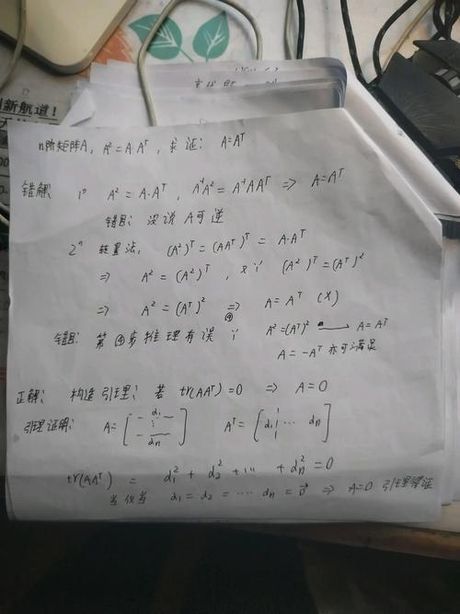 新航道!
n阶矩阵A, A² = A·Aᵀ, 求证: A=Aᵀ
错解: 1° A² = A·Aᵀ, A⁻¹A² = A⁻¹AAᵀ ⇒ A=Aᵀ
错因: 没说A可逆
2° 转置法, (A²)ᵀ = (AAᵀ)ᵀ = A·Aᵀ
⇒ A² = (A²)ᵀ, 又∵ (A²)ᵀ = (Aᵀ)²
⇒ A² = (Aᵀ)² ⇒④ A = Aᵀ (×)
错因: 第④步推理有误 ∵ A²=(Aᵀ)² A=Aᵀ
A=-Aᵀ 亦可满足
正解: 构造引理: 若 tr(AAᵀ)=0 ⇒ A=0
引理证明: A= [α₁ ⋮ αn] Aᵀ = [α₁ ⋯ αn]
tr(AAᵀ) = α₁² + α₂² + ⋯ + αn² = 0
当仅当 α₁ = α₂ = ⋯ αn = 0⃗ ⇒ A=0 引理得证